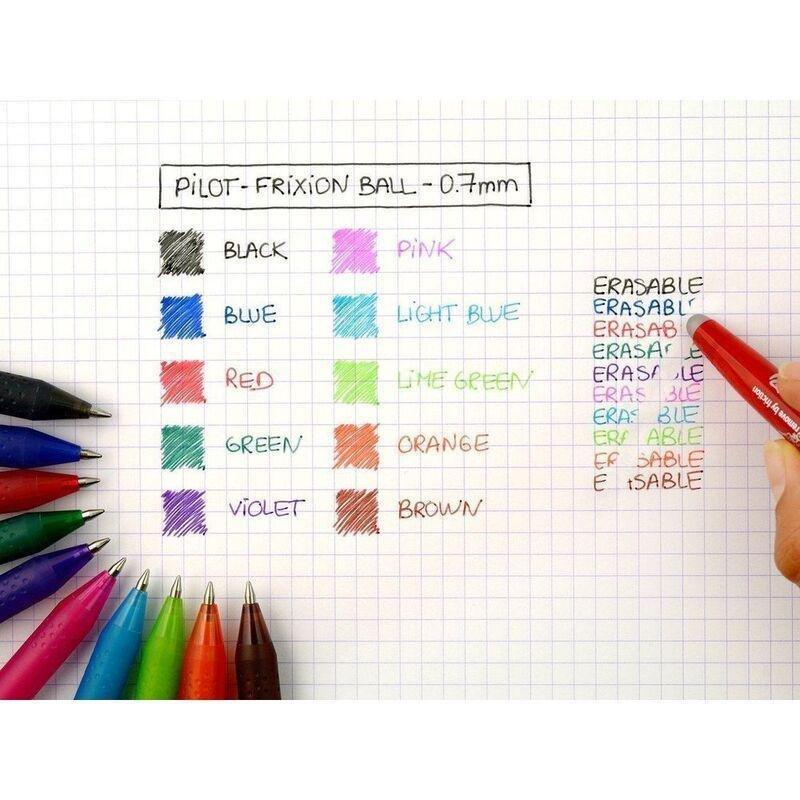 PILOT-FRIXION BALL-0.7mm
BLACK
BLUE
RED
GREEN
VIOLET
PINK
LIGHT BLUE
LIME GREEN
ORANGE
BROWN
ERASABLE
ERASABL
ERASAB
ERASA LE
ERAS BLE
ERAS BLE
ERA BLE
ER ABLE
ER SABLE
E SABLE
remove by friction